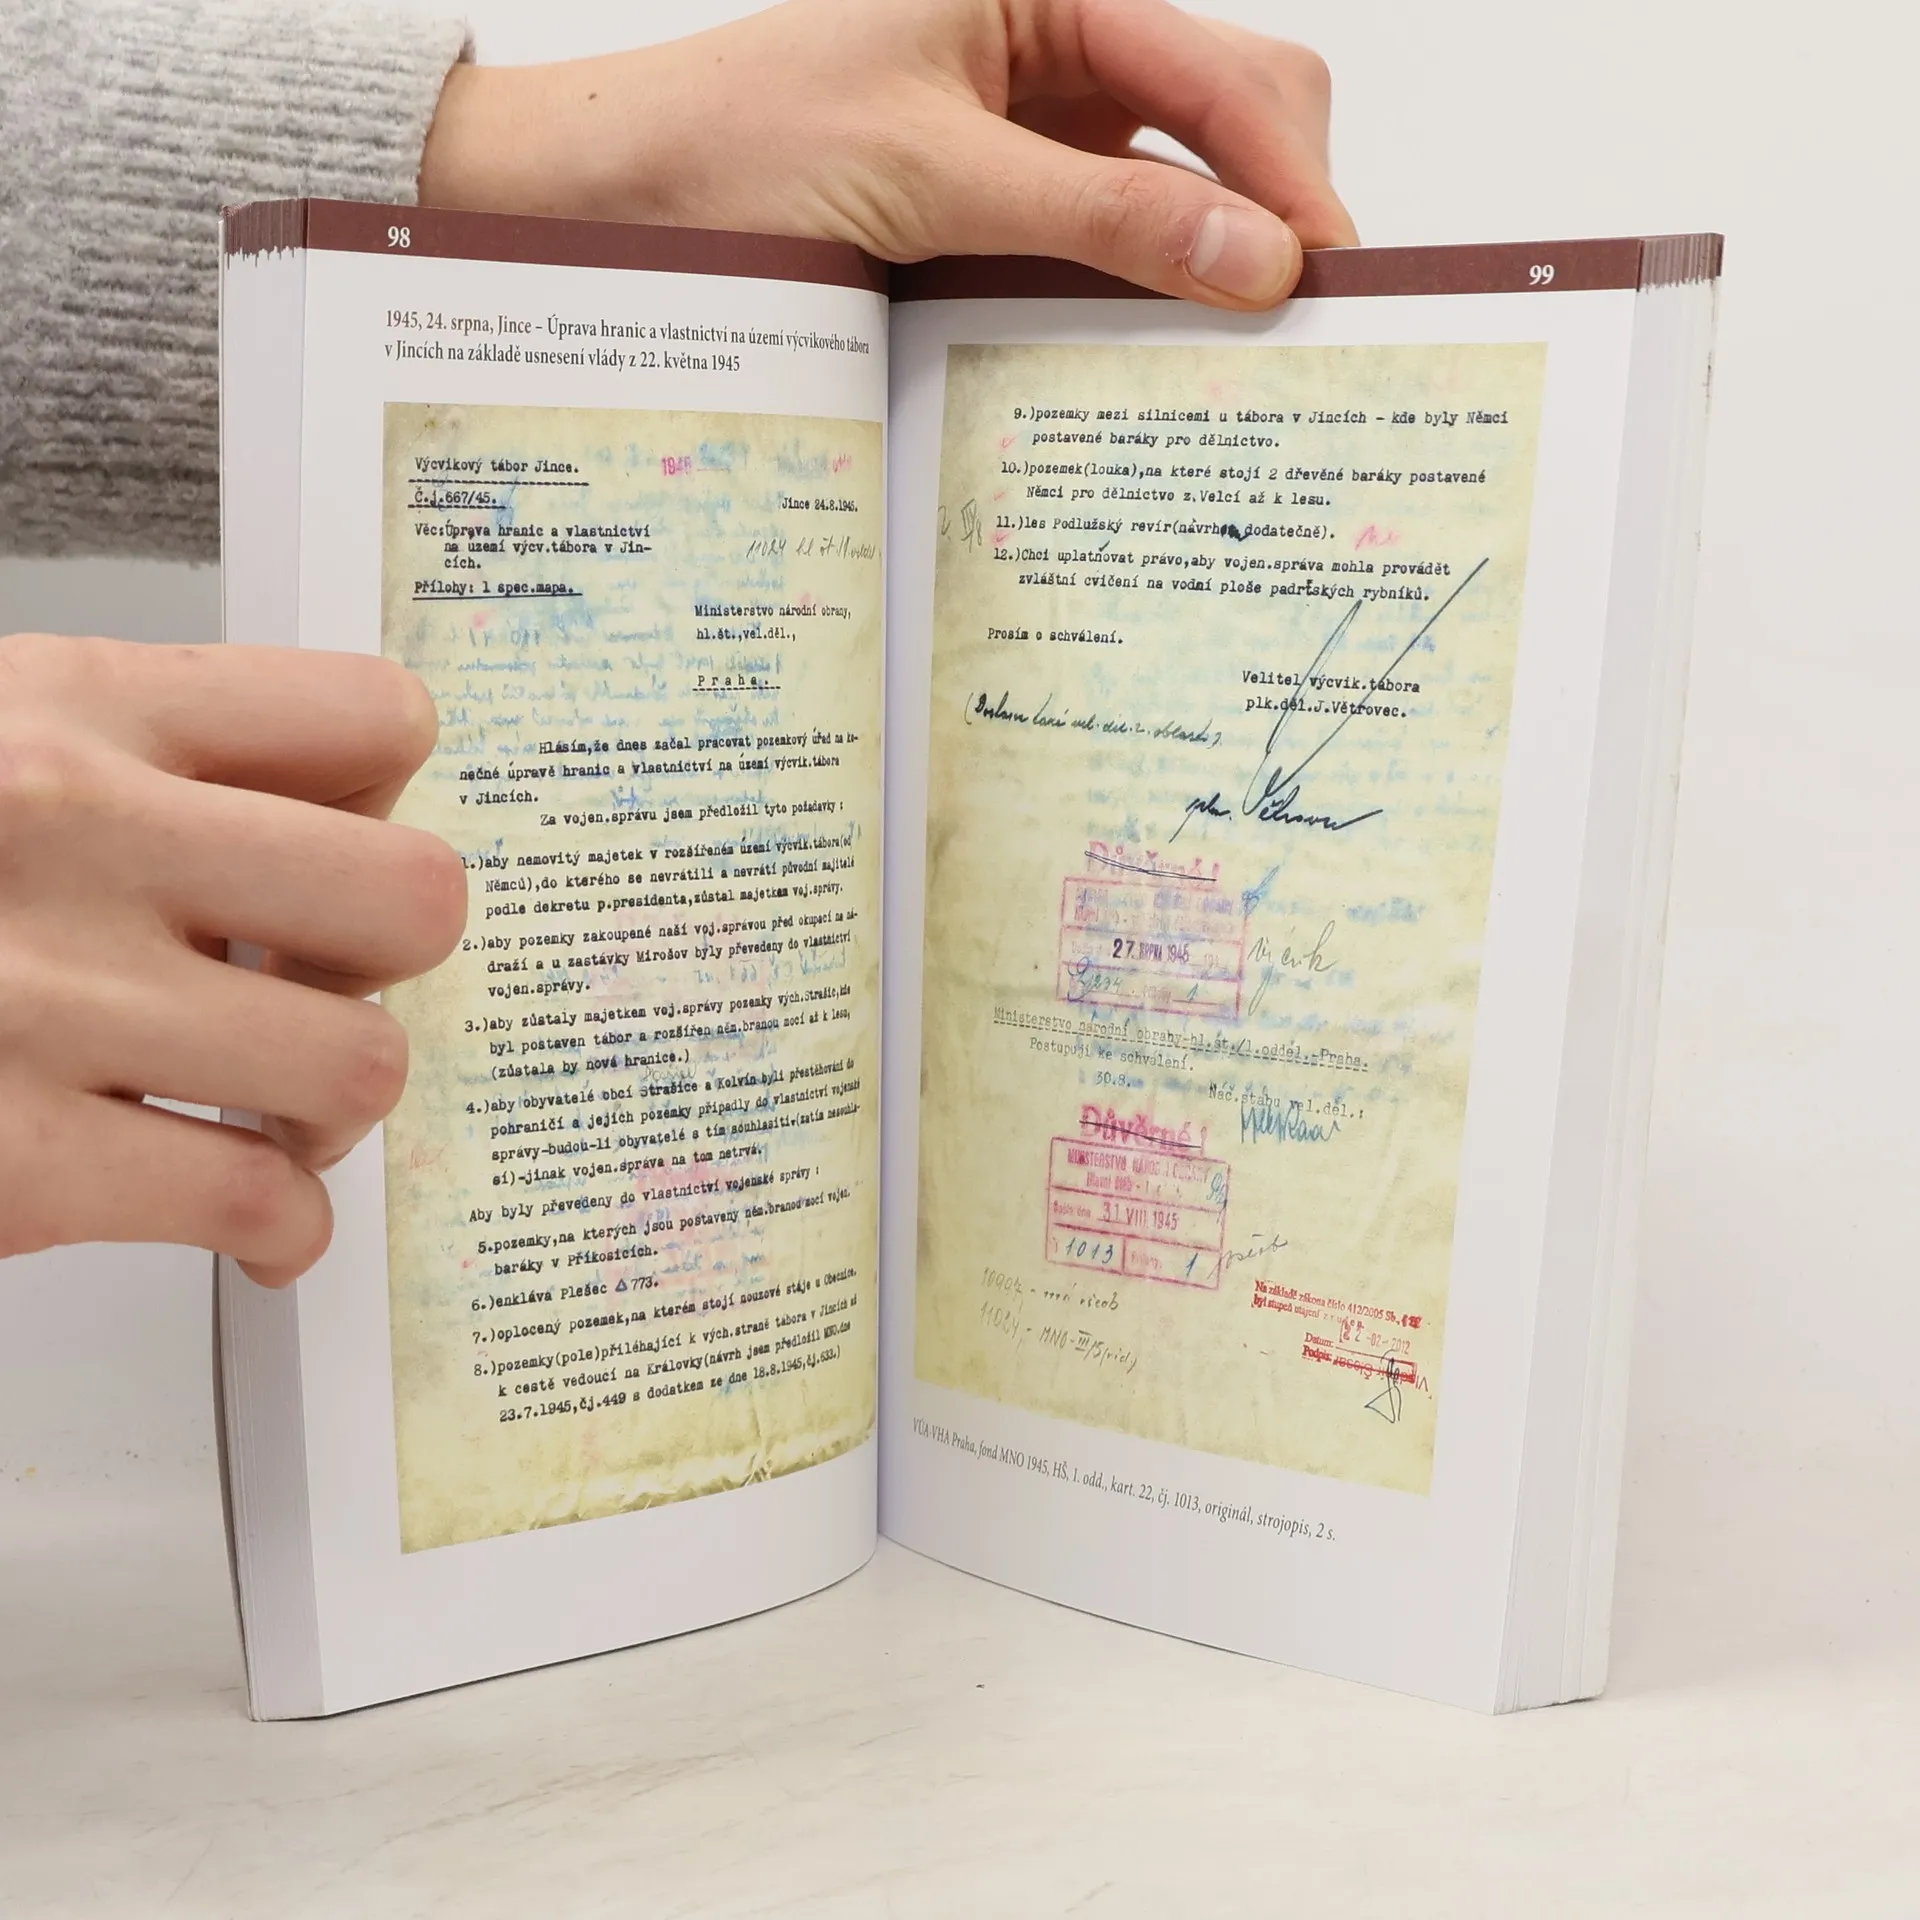 98
1945, 24. srpna, Jince – Úprava hranic a vlastnictví na území výcvikového tábora
v Jincích na základě usnesení vlády z 22. května 1945
Výcvikový tábor Jince.
1945
Č.j.667/45.
Jince 24.8.1945.
Věc:Úprava hranic a vlastnictví
na uzemí výcv.tábora v Jin-
cích.
11024
Přílohy: 1 spec.mapa.
Ministerstvo národní obrany,
hl.št.,vel.děl.,
Praha.
Hlásím,že dnes začal pracovat pozemkový úřad na ko-
nečné úpravě hranic a vlastnictví na území výcvik.tábora
v Jincích.
Za vojen.správu jsem předložil tyto požadavky :
1.)aby nemovitý majetek v rozšířeném území výcvik.tábora(od
Němců),do kterého se nevrátili a nevrátí původní majitelé
podle dekretu p.presidenta,zůstal majetkem voj.správy.
2.)aby pozemky zakoupené naší voj.správou před okupací na ná-
draží a u zastávky Mirošov byly převedeny do vlastnictví
vojen.správy.
3.)aby zůstaly majetkem voj.správy pozemky vých.Strašic,kde
byl postaven tábor a rozšířen něm.branou mocí až k lesu,
(zůstala by nová hranice.)
4.)aby obyvatelé obcí Strašice a Kolvín byli přestěhováni do
pohraničí a jejich pozemky připadly do vlastnictví vojenské
správy-budou-li obyvatelé s tím souhlasiti-(zatím nesouhla-
sí)-jinak vojen.správa na tom netrvá.
Aby byly převedeny do vlastnictví vojenské správy :
5.pozemky,na kterých jsou postaveny něm.branou mocí vojen.
baráky v Příkosicích.
6.)enkláva Plešec △ 773.
7.)oplocený pozemek,na kterém stojí nouzové stáje u Obecnice.
8.)pozemky(pole)přiléhající k vých.straně tábora v Jincích až
k cestě vedoucí na Královky(návrh jsem předložil MNO.dne
23.7.1945,čj.449 s dodatkem ze dne 18.8.1945,čj.633.)
99
9.)pozemky mezi silnicemi u tábora v Jincích – kde byly Němci
postavené baráky pro dělnictvo.
10.)pozemek(louka),na které stojí 2 dřevěné baráky postavené
Němci pro dělnictvo z.Velcí až k lesu.
11.)les Podlužský revír(návrh dodatečně).
12.)Chci uplatňovat právo,aby vojen.správa mohla provádět
zvláštní cvičení na vodní ploše padrťských rybníků.
Prosím o schválení.
Velitel výcvik.tábora
plk.děl.J.Větrovec.
Důvěrné!
27. SRPNA 1945
1
Ministerstvo národní obrany-hl.št./1.odděl.-Praha.
Postupuji ke schválení.
30.8.
Náč.štabu vel.děl.:
Důvěrné!
MINISTERSTVO NÁROD
Hlavní štáb - 1
Došlo dne 31 VIII 1945
1013
1
10997 -
11024, - MNO-III/5
Na základě zákona číslo 412/2005 Sb.,
byl stupeň utajení zrušen
Datum: -02- 2012
Podpis:
VÚA-VHA Praha, fond MNO 1945, HŠ, 1. odd., kart. 22, čj. 1013, originál, strojopis, 2 s.